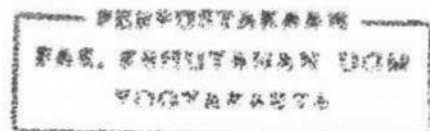 PERPUSTAKAAN
FAK. KEHUTANAN UGM
YOGYAKARTA